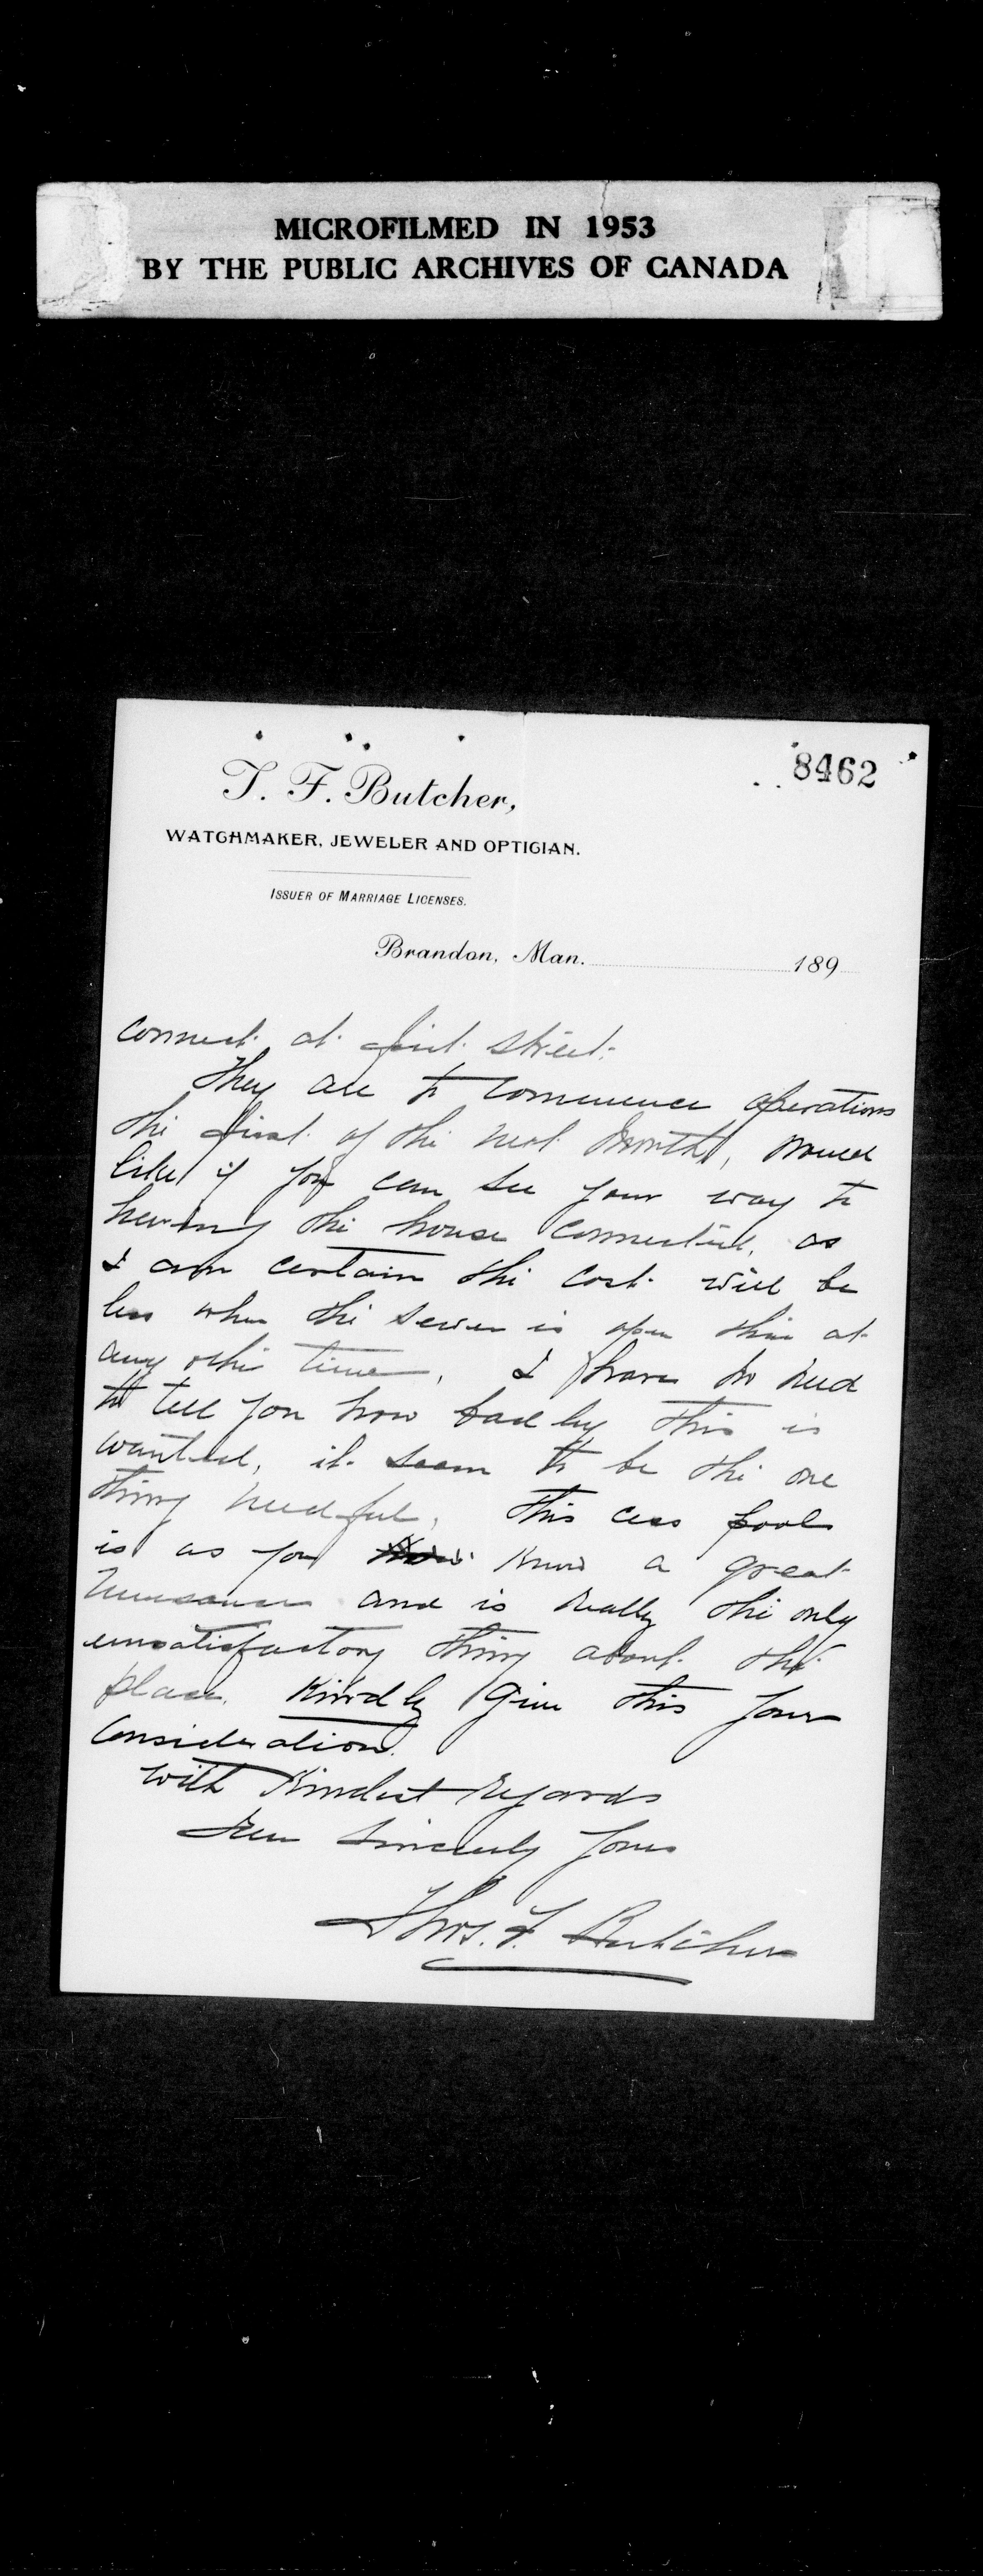 MICROFILMED IN 1953
BY THE PUBLIC ARCHIVES OF CANADA
8462
T. F. Butcher,
WATCHMAKER, JEWELER AND OPTICIAN.
ISSUER OF MARRIAGE LICENSES.
Brandon, Man. 189
connect at first street.
They are to commence operations
the first of the next month, would
like if you can see your way to
having the house connected, as
I am certain the cost will be
less when the sewer is open than at
any other time. I have no need
to tell you how badly this is
wanted, it seem to be the one
thing needful, this cess pool
is as you know a great
nuisance and is really the only
unsatisfactory thing about the
place. Kindly give this your
consideration.
with Kindest regards
Sincerely Yours
Thos. F. Butcher